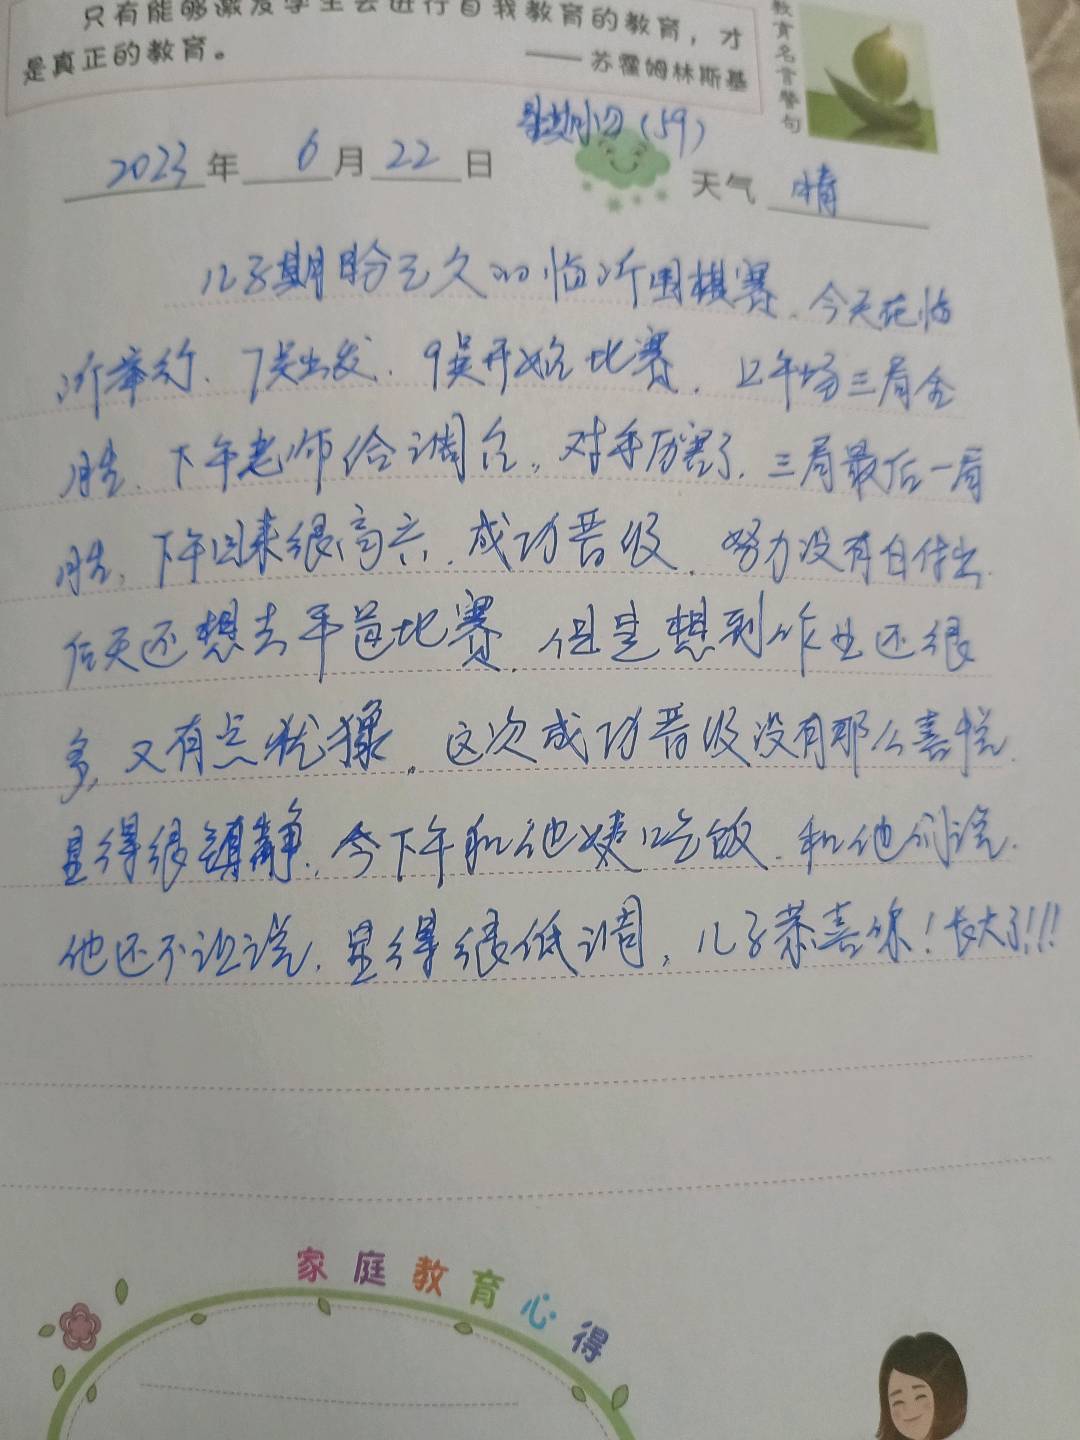 只有能够激发学生去进行自我教育的教育，才
是真正的教育。
——苏霍姆林斯基
教育名言警句
星期四（59）
2023年6月22日
天气 晴
儿子期盼已久的临沂围棋赛、今天在临
沂举行、7点出发、9点开始比赛、上午场三局全
胜、下午老师给调台，对手厉害了、三局最后一局
胜、下午回来很高兴、成功晋级、努力没有白付出、
后天还想去平邑比赛、但是想到作业还很
多，又有点犹豫。这次成功晋级没有那么喜悦、
显得很镇静、今下午和他姨吃饭、和他们说、
他还不让说、显得很低调，儿子恭喜你！长大了！！！
家庭教育心得